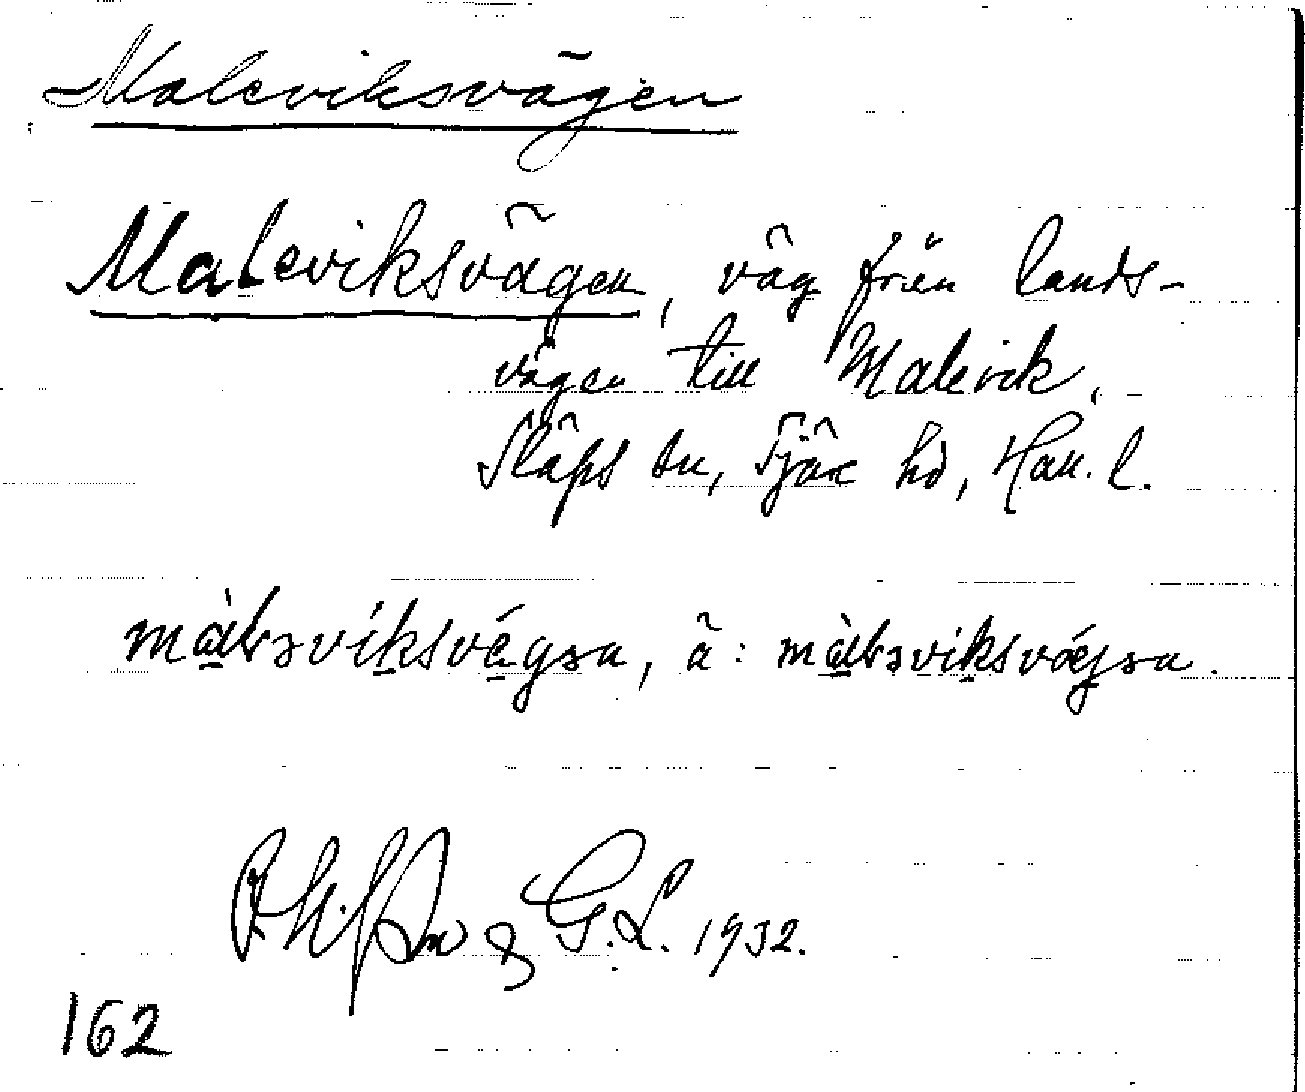 Maleviksvägen
Maleviksvägen, väg från lands-
vägen till Malevik,
Släps sn, Fjäre hd, Hall. l.
màləvíksvǽgən, ä: màləviksvǽgən.
G.L. 1932.
162